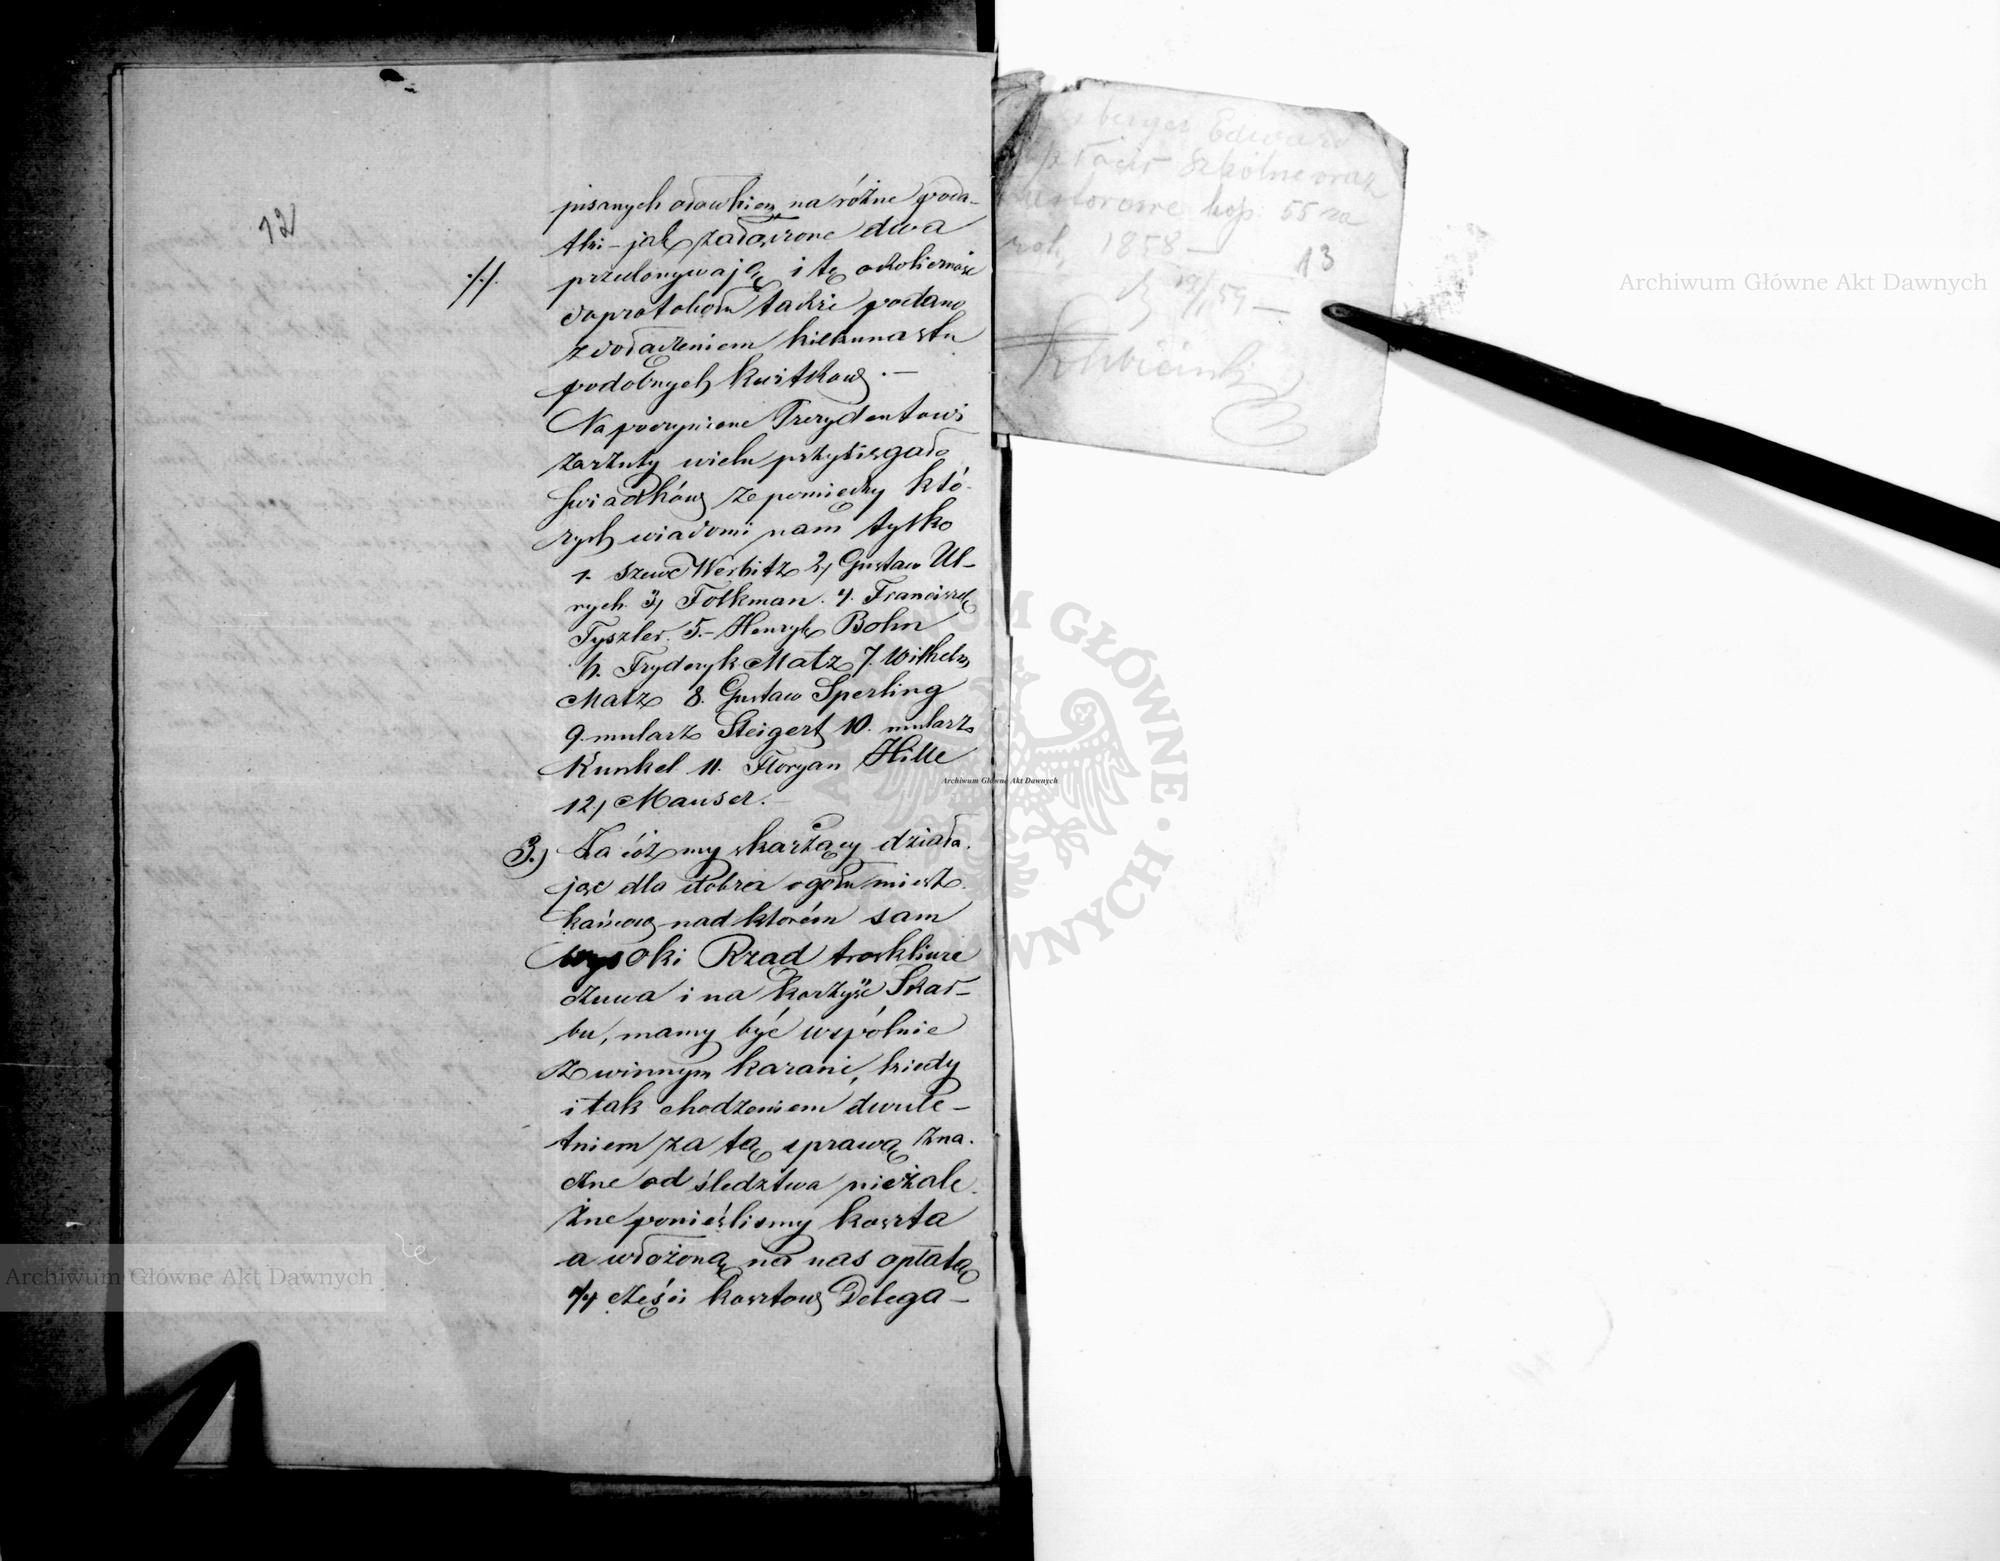 12
pisanych ołowkiem na różne poda-
tki – jak załączone dwa
·/·/. przekonywają i tę okoliczność
do protokołu także podano
z dołączeniem kilkunastu
podobnych kwitków. –
Na poczynione Prezydentowi
zarzuty wielu przysięgało
świadków ze pomiędzy któ-
rych wiadomi nam tylko
1. szewc Werbitz 2, Gustaw Ul-
rych. 3, Folkman. 4. Franciszek
Tyszler. 5.– Henryk Bohn
6. Fryderyk Matz 7. Wilhelm
Matz 8. Gustaw Sperling
9. mularz Steigert 10. mularz
Kunkel 11. Floryan Hille
12, Mauser. –
3.) Za cóż my skarżący działa-
jąc dla dobra ogółu miesz-
kańców nad ktorém sam
wysoki Rząd troskliwie
czuwa i na korzyść Skar-
bu, mamy być wspólnie
z winnym karani, kiedy
i tak chodzeniem dwule-
tniem za tą sprawą zna-
czne od śledztwa nieżale-
żne ponieśliśmy koszta
a włożoną na nas opłatą
1/4 części kosztów Delega-
berger Edward
szkolne oraz
kop. 55 za
rok 1858 –
13
19/1 59 –
Archiwum Główne Akt Dawnych
Archiwum Główne Akt Dawnych
Archiwum Główne Akt Dawnych